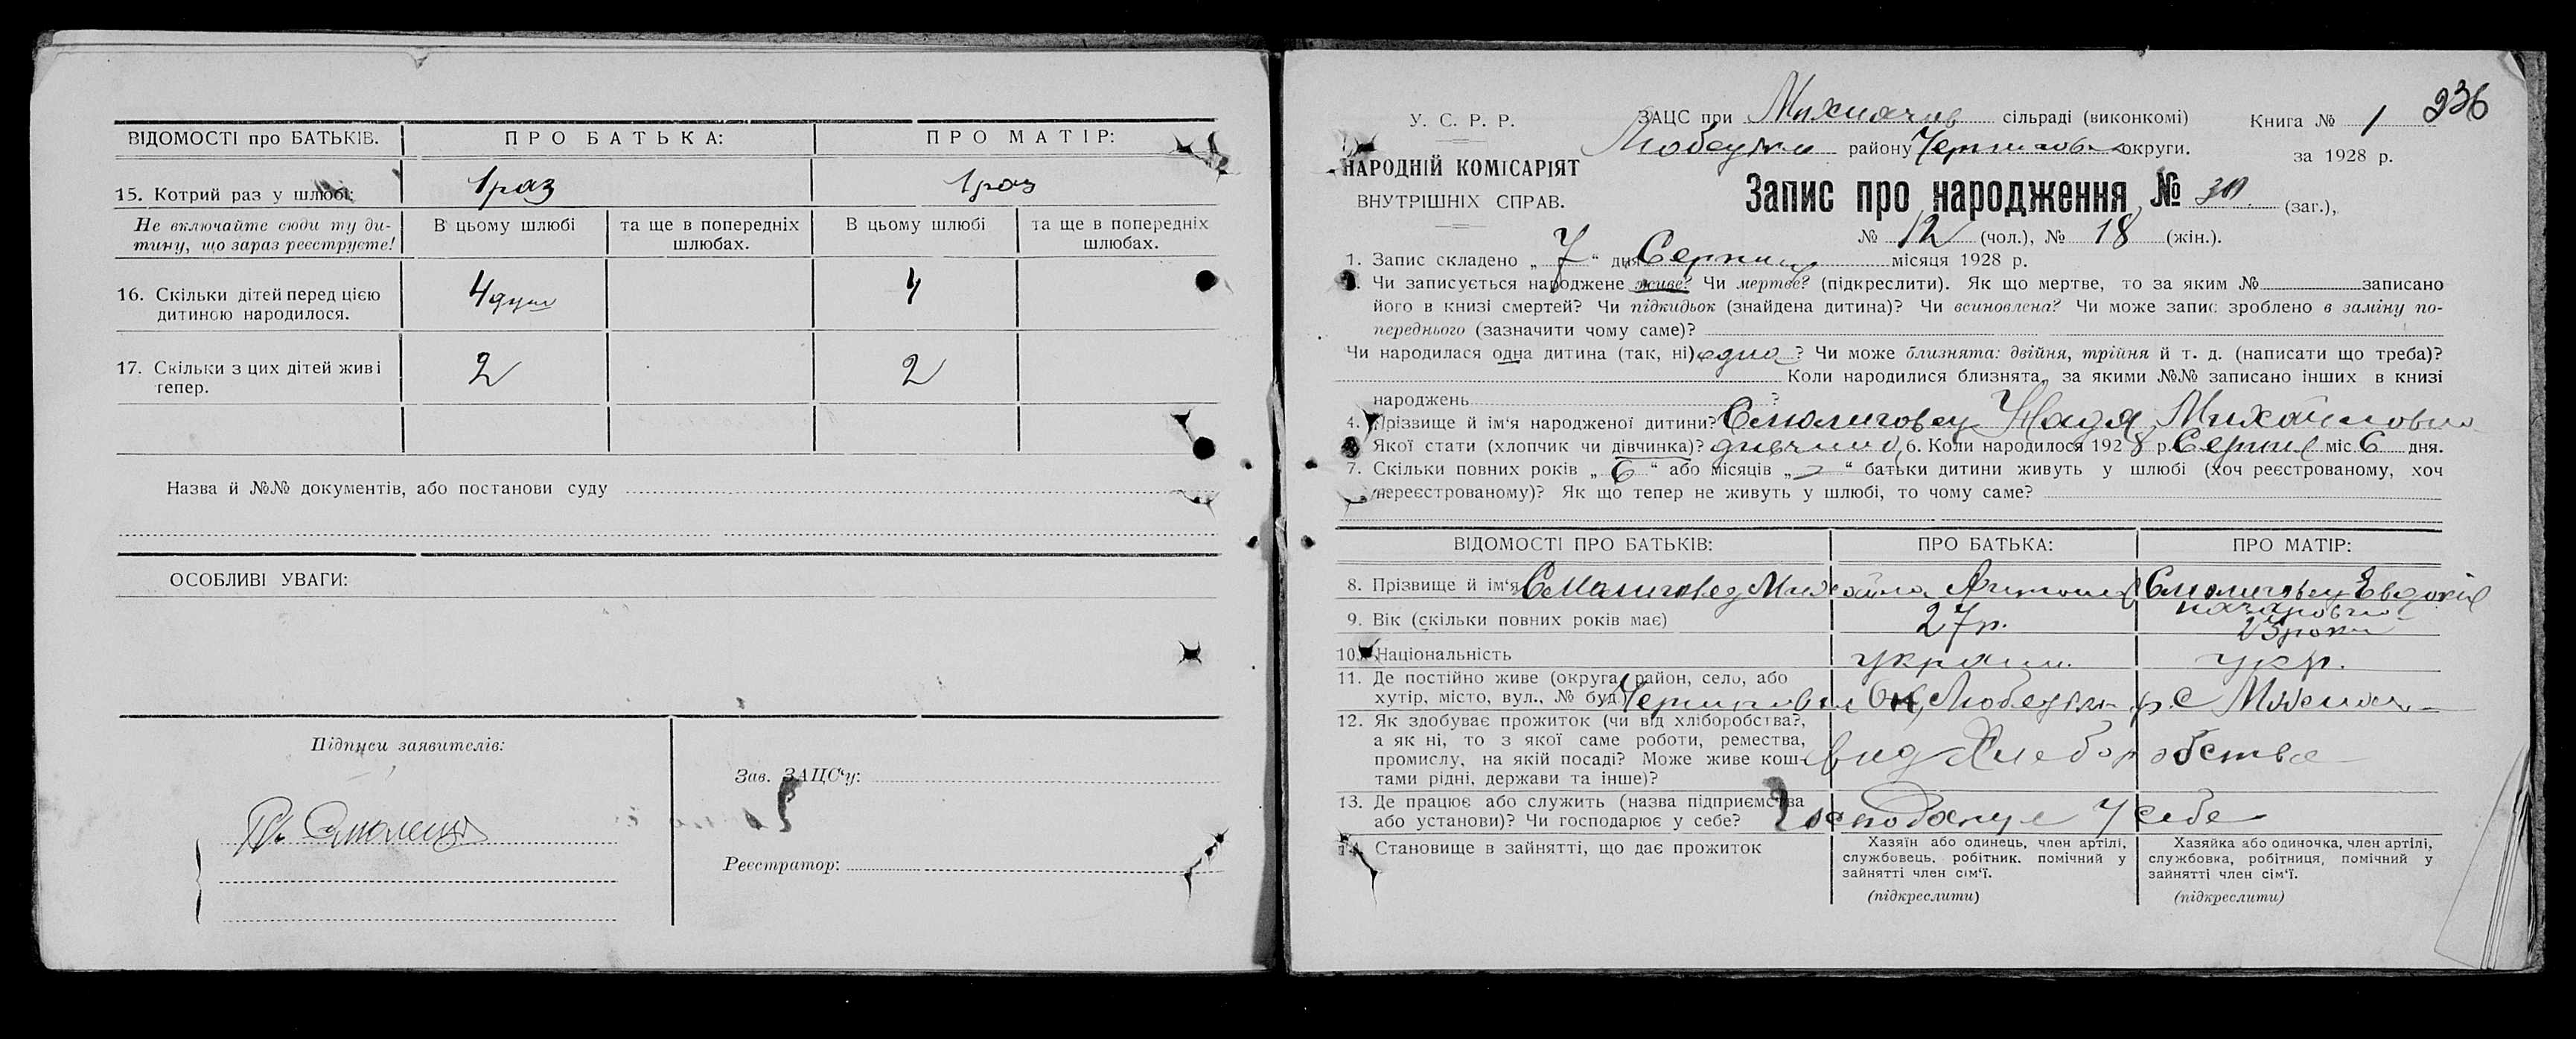 ВІДОМОСТІ про БАТЬКІВ. ПРО БАТЬКА: ПРО МАТІР:
15. Котрий раз у шлюбі: 1 раз 1 раз
Не включайте сюди ту ди- В цьому шлюбі та ще в попередніх В цьому шлюбі та ще в попередніх
тину, що зараз реєструєте! шлюбах. шлюбах.
16. Скільки дітей перед цією 4 душ 4
дитиною народилося.
17. Скільки з цих дітей живі 2 2
тепер.
Назва й №№ документів, або постанови суду
ОСОБЛИВІ УВАГИ:
Підписи заявителів:
Зав. ЗАЦС'у:
Реєстратор:
236
У. С. Р. Р. ЗАЦС при сільраді (виконкомі) Книга № 1
району округи. за 1928 р.
НАРОДНІЙ КОМІСАРІЯТ
ВНУТРІШНІХ СПРАВ. Запис про народження № 30 (заг.),
№ 12 (чол.), № 18 (жін.).
1. Запис складено „ 7 “ дня Серпня місяця 1928 р.
Чи записується народжене живе? Чи мертве? (підкреслити). Як що мертве, то за яким № записано
його в книзі смертей? Чи підкидьок (знайдена дитина)? Чи всиновлена? Чи може запис зроблено в заміну по-
переднього (зазначити чому саме)?
Чи народилася одна дитина (так, ні) одна ? Чи може близнята: двійня, трійня й т. д. (написати що треба)?
Коли народилися близнята, за якими №№ записано інших в книзі
народжень ?
4. Прізвище й ім'я народженої дитини? Надя Михайловна
Якої стати (хлопчик чи дівчинка)? 6. Коли народилося 1928 р. Серпня міс. 6 дня.
7. Скільки повних років „ 6 “ або місяців „ “ батьки дитини живуть у шлюбі (хоч реєстрованому, хоч
нереєстрованому)? Як що тепер не живуть у шлюбі, то чому саме?
ВІДОМОСТІ ПРО БАТЬКІВ: ПРО БАТЬКА: ПРО МАТІР:
8. Прізвище й ім'я Михайло Евдокія
9. Вік (скільки повних років має) 27 р. 23 роки
10. Національність україн. укр.
11. Де постійно живе (округа, район, село, або
хутір, місто, вул., № буд.)
12. Як здобуває прожиток (чи від хліборобства?,
а як ні, то з якої саме роботи, ремества,
промислу, на якій посаді? Може живе кош- вид Хлеборобства
тами рідні, держави та інше)?
13. Де працює або служить (назва підприємства
або установи)? Чи господарює у себе? Господарує У себе
14. Становище в зайнятті, що дає прожиток Хазяїн або одинець, член артілі, Хазяйка або одиночка, член артілі,
службовець, робітник, помічний у службовка, робітниця, помічний у
зайнятті член сім'ї. зайнятті член сім'ї.
(підкреслити) (підкреслити)